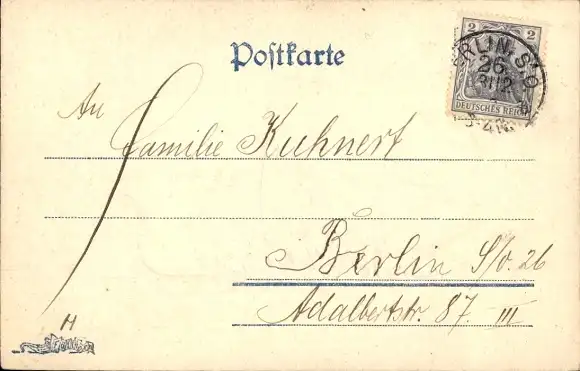 Postkarte
2 2
DEUTSCHES REICH
BERLIN. S.O.
26
31.12
An
Familie Kuhnert
Berlin S/o. 26
Adalbertstr. 87. III
H